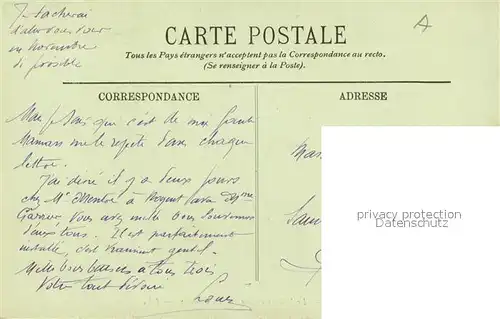 Je tacherai
d'aller vous voir
en novembre
si possible
A
CARTE POSTALE
Tous les Pays étrangers n'acceptent pas la Correspondance au recto.
(Se renseigner à la Poste).
CORRESPONDANCE
Mais je sais que c'est de ma faute
Maman me le repete dans chaque
lettre.
J'ai diné il y a deux jours
chez Mr à Nogent avec Mme
Garnier. Vous avez mille bons
deux tous. Il est parfaitement
installé, c'est vraiment gentil.
Mille bons baisers à tous trois
Votre tout dévoué
ADRESSE
privacy protection
privacy protection